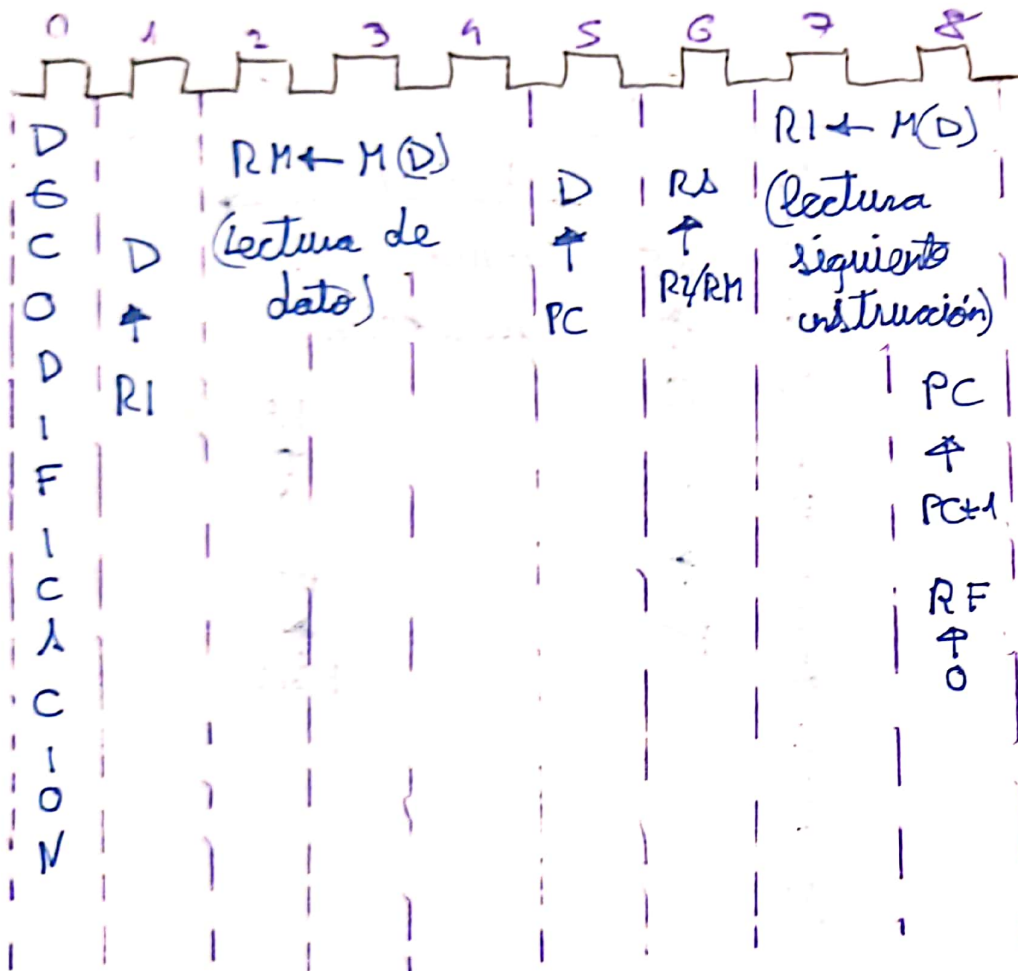 0 1 2 3 4 5 6 7 8
DECODIFICACION
D
↑
RI
RM ← M(D)
(Lectura de
dato)
D
↑
PC
RS
↑
RM
RI ← M(D)
(lectura
siguiente
instrucción)
PC
↑
PC+1
RF
↑
0